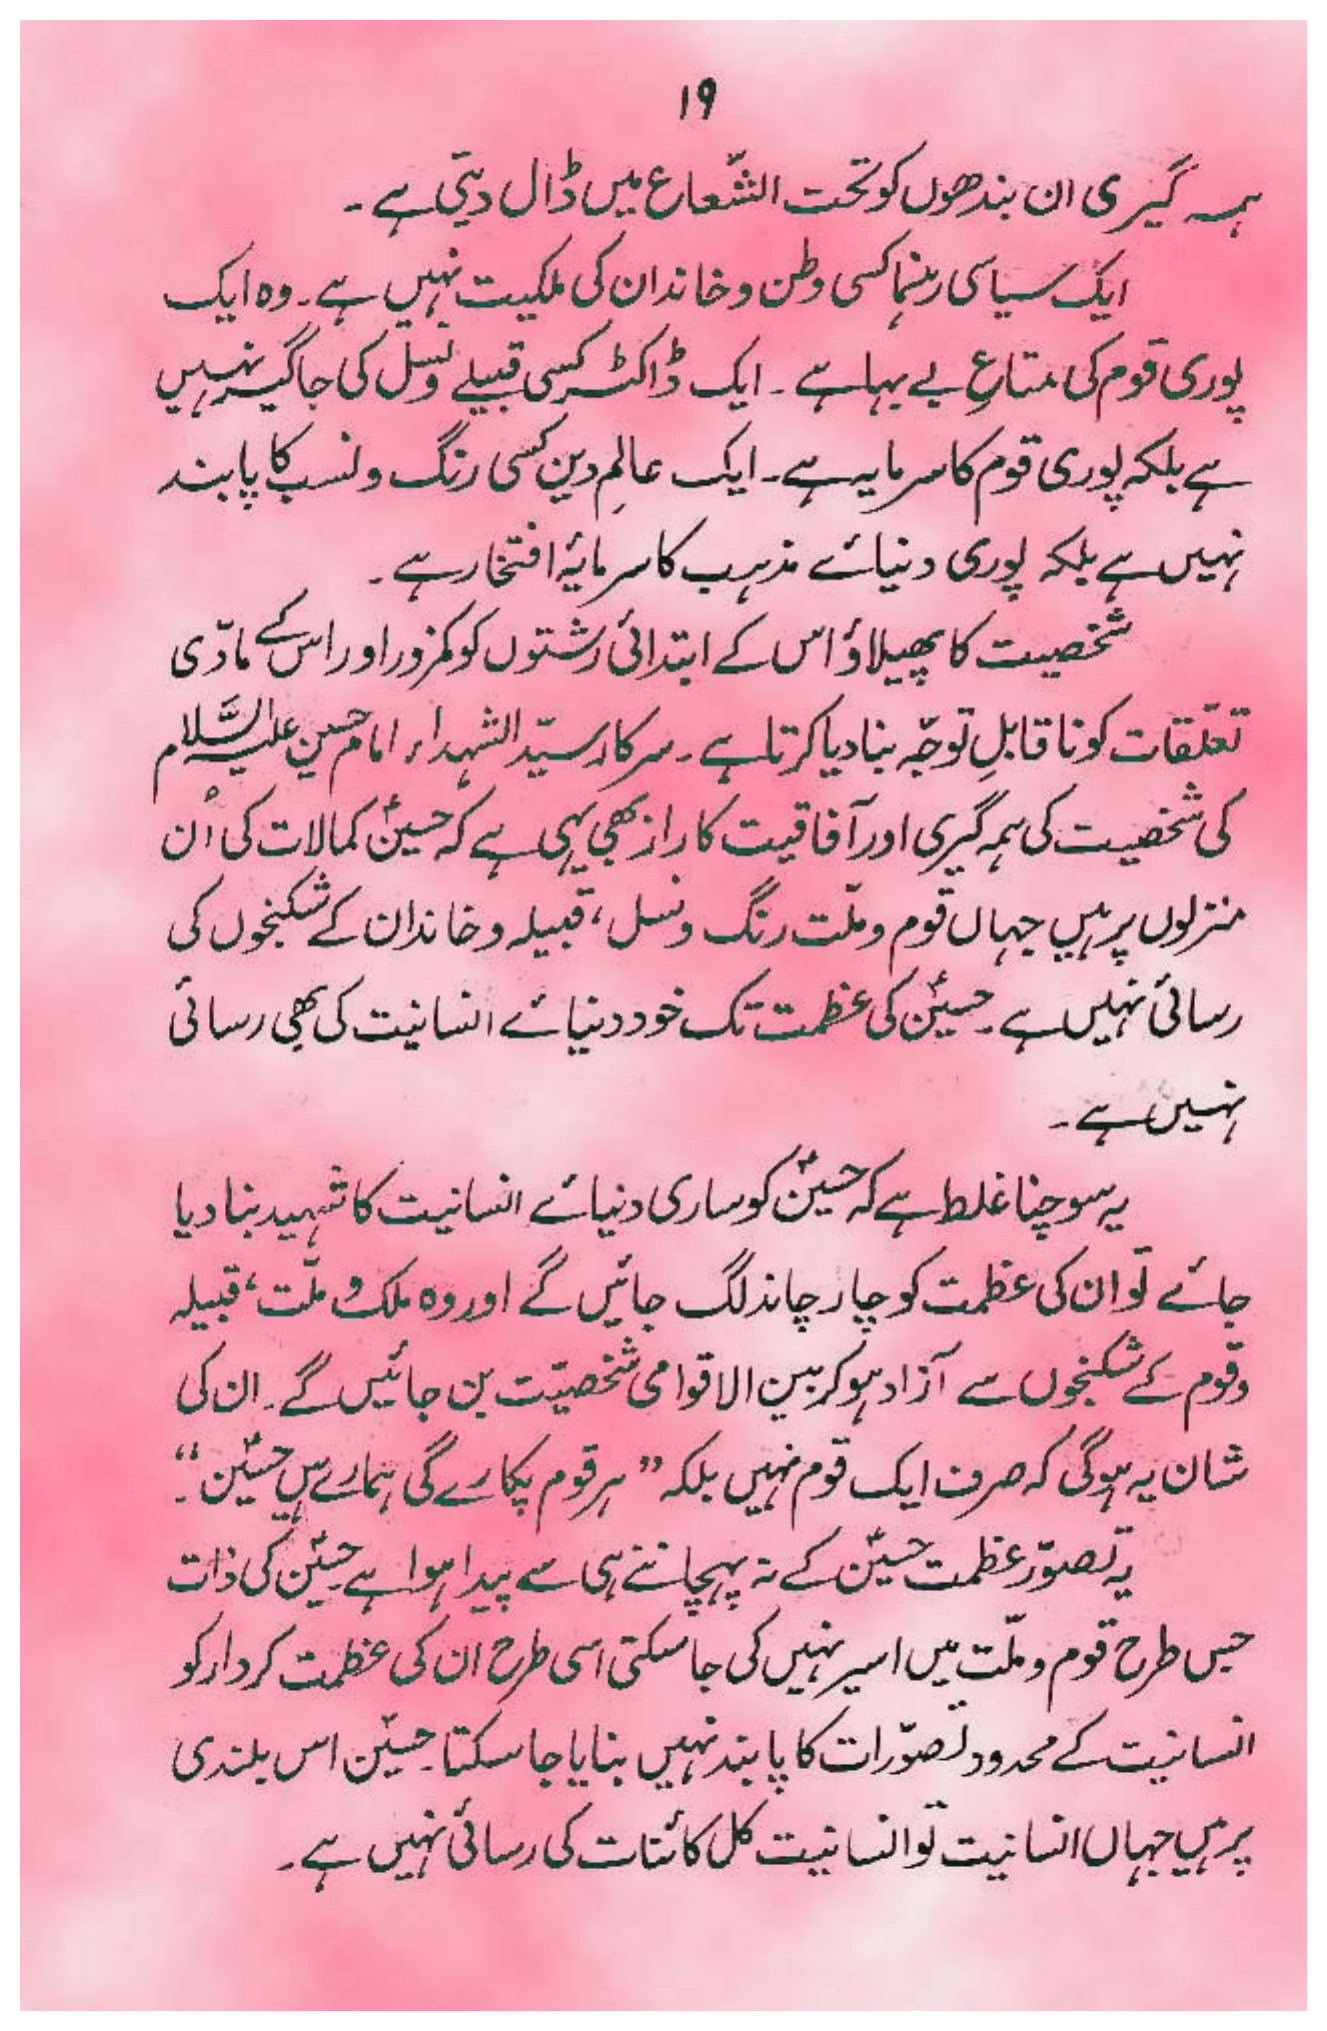 ۱۹
ہمہ گیری ان بندھوں کو تحت الشّعاع میں ڈال دیتی ہے ۔
ایک سیاسی رہنما کسی وطن و خاندان کی ملکیت نہیں ہے ۔ وہ ایک
پوری قوم کی متاعِ بے بہا ہے ۔ ایک ڈاکٹر کسی قبیلے و نسل کی جاگیر نہیں
ہے بلکہ پوری قوم کا سرمایہ ہے ۔ ایک عالمِ دین کسی رنگ و نسب کا پابند
نہیں ہے بلکہ پوری دنیائے مذہب کا سرمایۂ افتخار ہے ۔
شخصیت کا پھیلاؤ اس کے ابتدائی رشتوں کو کمزور اور اس کے مادّی
تعلّقات کو ناقابلِ توجّہ بنا دیا کرتا ہے ۔ سرکار سیّد الشہداء امام حسین علیہ السَّلام
کی شخصیت کی ہمہ گیری اور آفاقیت کا راز بھی یہی ہے کہ حسینؑ کمالات کی اُن
منزلوں پر ہیں جہاں قوم و ملّت رنگ و نسل ، قبیلہ و خاندان کے شکنجوں کی
رسائی نہیں ہے ۔ حسینؑ کی عظمت تک خود دنیائے انسانیت کی بھی رسائی
نہیں ہے ۔
یہ سوچنا غلط ہے کہ حسینؑ کو ساری دنیائے انسانیت کا شہید بنا دیا
جائے تو ان کی عظمت کو چار چاند لگ جائیں گے اور وہ ملک و ملّت ، قبیلہ
و قوم کے شکنجوں سے آزاد ہو کر بین الاقوامی شخصیّت بن جائیں گے ۔ ان کی
شان یہ ہوگی کہ صرف ایک قوم نہیں بلکہ ” ہر قوم پکارے گی ہمارے ہیں حسینؑ “ ۔
یہ تصوّر عظمت حسینؑ کے نہ پہچاننے ہی سے پیدا ہوا ہے حسینؑ کی ذات
جس طرح قوم و ملّت میں اسیر نہیں کی جا سکتی اسی طرح ان کی عظمت کردار کو
انسانیت کے محدود تصوّرات کا پابند نہیں بنایا جا سکتا ۔ حسینؑ اس بلندی
پر ہیں جہاں انسانیت تو انسانیت کل کائنات کی رسائی نہیں ہے ۔